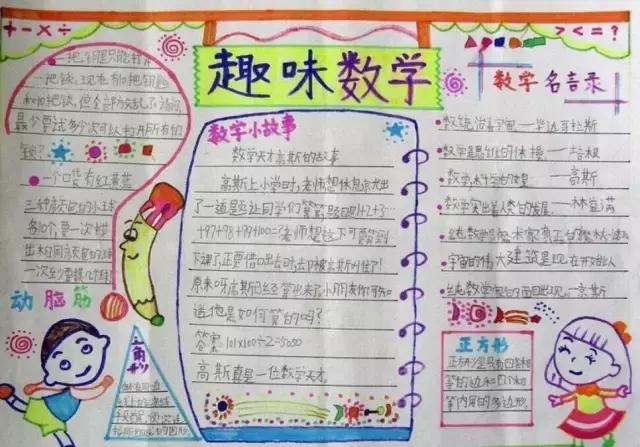 + - × ÷
趣味数学
> < = ?
一把钥匙只能打开
一把锁,现在有10把钥匙
和10把锁,但全部弄乱了,请问
最少要试多少次可以打开所有的
锁?
一个口袋有红黄蓝
三种颜色的小球
各10个,要一次摸
出不同颜色的
一次至少要摸几个球
动脑筋
三角形
数学小故事
数学天才高斯的故事
高斯上小学时,老师想休息,就出
了一道题让同学们算算,题目是1+2+3…
+97+98+99+100=?老师想这下可算到
下课了,正要借口出去时,却被高斯叫住了!
原来呀,高斯已经算出来了,小朋友你可知
道他是如何算的吗?
答案:101×100÷2=5000
高斯真是一位数学天才。
数学名言录
数统治着宇宙。—毕达哥拉斯
数学是思维的体操。—培根
数学,科学的皇后—高斯
数学突出着人类的发展。—林益满
纯数学是魔术家真正的魔杖
宇宙的伟大建筑是现在开始以
纯数学家的面目出现。—京斯
正方形
正方形是具有四条相
等的边和四个相
等内角的多边形。